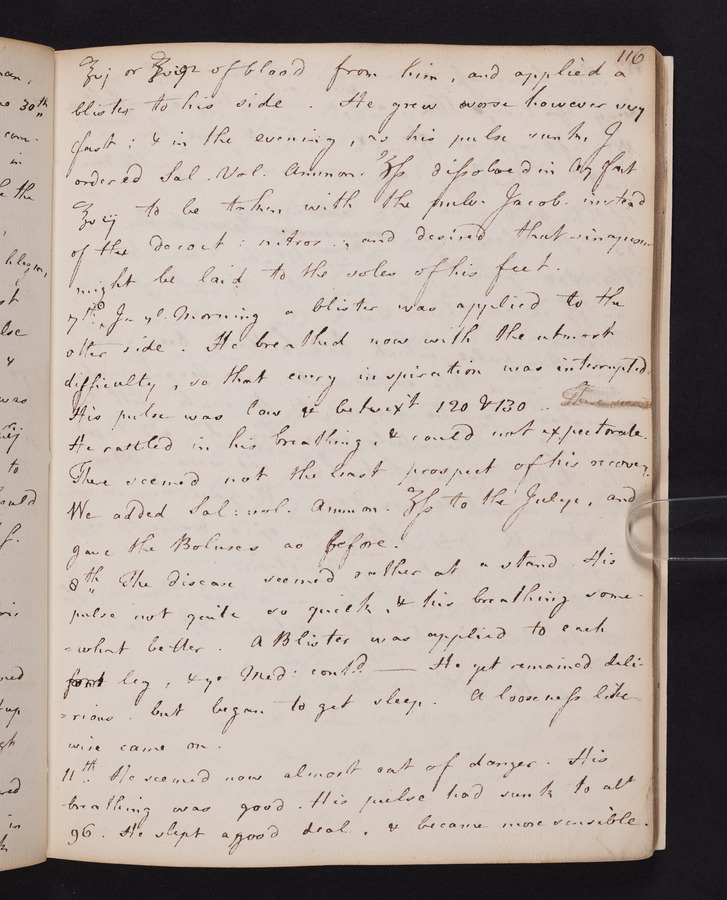 116
Ʒvj or Ʒviij of blood from him, and applied a
blister to his side. He grew worse however very
fast; & in the evening, as his pulse sunk, I
ordered Sal. Vol. Ammon. Ʒſs diſsolved in
Ʒiij to be taken with the pulv. Jacob. instead
of the decoct: nitros:, and desired that sinapisms
might be laid to the soles of his feet.
7th. In ye. Morning a blister was applied to the
other side. He breathed now with the utmost
difficulty, so that every inspiration was interrupted.
His pulse was low & betwixt 120 & 130.
He rattled in his breathing, & could not expectorate.
There seemed not the least prospect of his recovery.
We added Sal: vol. Ammon. Ʒſs to the Julep, and
gave the Boluses as before.
8th The disease seemed rather at a stand. His
pulse not quite so quick, & his breathing some-
=what better. A Blister was applied to each
leg, & ye Med: contd. — He yet remained deli-
=rious, but began to get sleep. A looseneſs like
wise came on.
11th. He seemed now almost out of danger. His
breathing was good. His pulse had sunk to abt
96. He slept a good deal, & became more sensible.